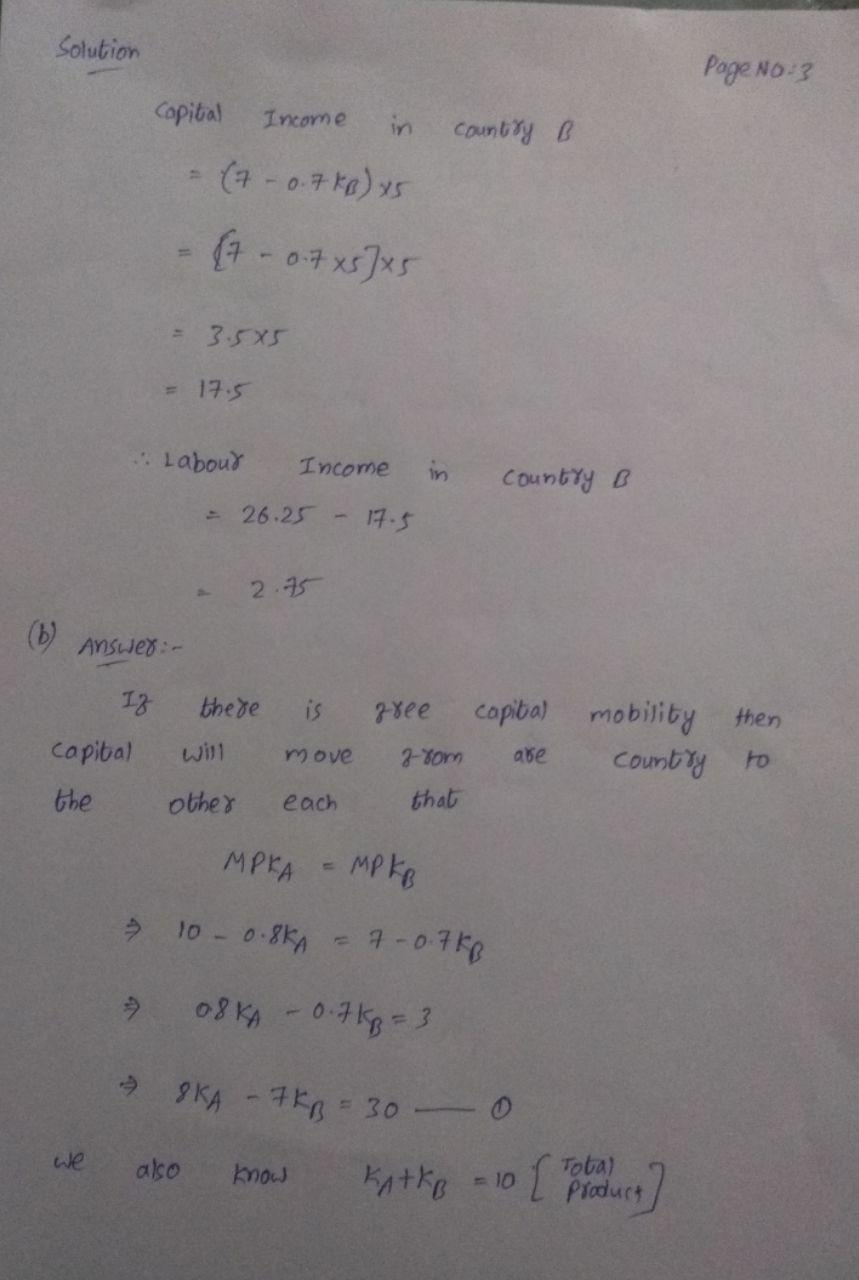 Solution
Page No:3
Capital Income in country B
= (7 - 0.7 KB) x5
= [7 - 0.7 x5] x5
= 3.5x5
= 17.5
∴ Labour Income in country B
= 26.25 - 17.5
= 2.75
(b) Answer:-
If there is free capital mobility then
capital will move from are country to
the other each that
MPKA = MPKB
⇒ 10 - 0.8KA = 7 - 0.7KB
⇒ 08 KA - 0.7KB = 3
⇒ 8KA - 7KB = 30 —— ①
we also know KA+KB = 10 [Total
Product]